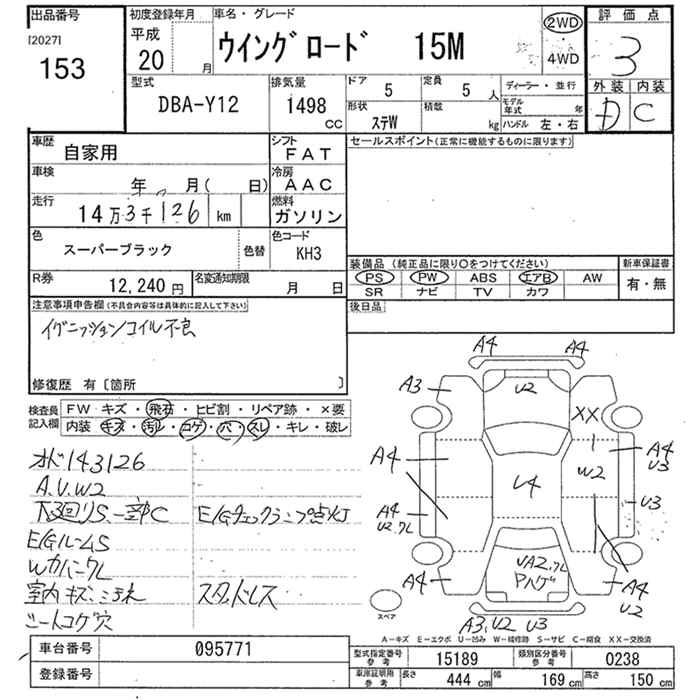 出品番号
[2027]
153
初度登録年月
平成
20 月
車名・グレード
ウイングロード 15M
2WD
4WD
評価点
3
外装 内装
D C
型式
DBA-Y12
排気量
1498 CC
ドア 5
定員 5 人
形状 ステW
積載 kg
ディーラー・並行
モデル年式 年
ハンドル 左・右
車歴
自家用
シフト
FAT
車検
年 月( 日)
冷房
AAC
走行
14万3千126 km
燃料
ガソリン
色
スーパーブラック
色替
色コード
KH3
R券
12,240 円
名変通知期限
月 日
セールスポイント(正常に機能するものに限ります)
装備品 (純正品に限り○をつけてください)
PS PW ABS エアB AW
SR ナビ TV カワ
新車保証書
有・無
後日品
注意事項申告欄(不具合内容等は具体的に記入して下さい)
イグニッションコイル不良
修復歴 有〔箇所 〕
検査員記入欄
FW キズ・飛石・ヒビ割・リペア跡・×要
内装 キズ・汚レ・コゲ・パ・スレ・キレ・破レ
オド143126
A.U.W2
下廻りS.一部C
E/Gチェックランプ点灯
E/GルームS
Wカバークレ
室内キズ.ミゾ汚れ
スタッドレス
シートコゲ穴
A4 A4
A3
U2
XX
A4
U4
W2
A4
U3
A4
U2.クレ
U3
A4
UA2.クレ
Pハゲ
A4
U2
A3.U2 U3
スペア
A-キズ E-エクボ U-凹み W-補修跡 S-サビ C-腐食 XX-交換済
車台番号
095771
登録番号
型式指定番号 参考
15189
類別区分番号 参考
0238
車庫証明用 参考
長さ 444 cm
幅 169 cm
高さ 150 cm